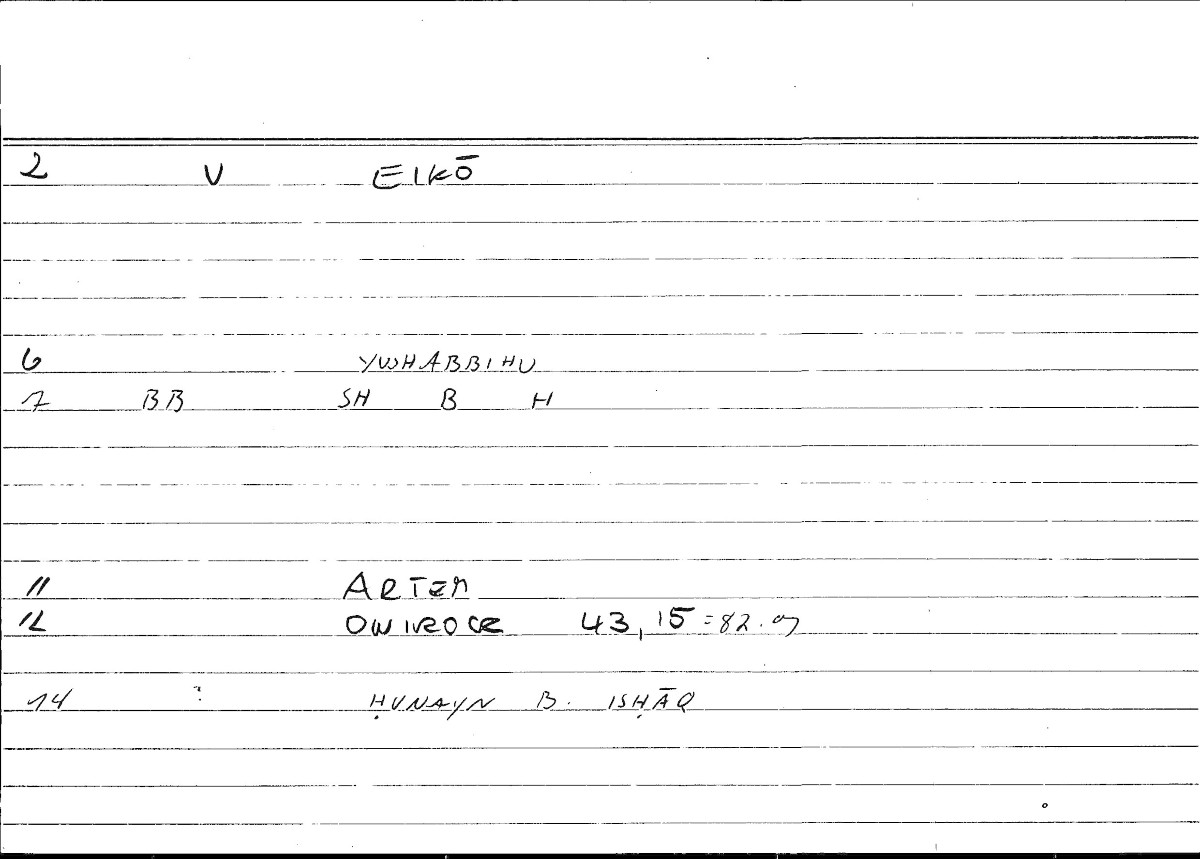 2 V EIKŌ
6 YUSHABBIHU
7 BB SH B H
11 ARTEM
12 OWIROCR 43,15=82.9
14 : ḤUNAYN B. ISḤĀQ